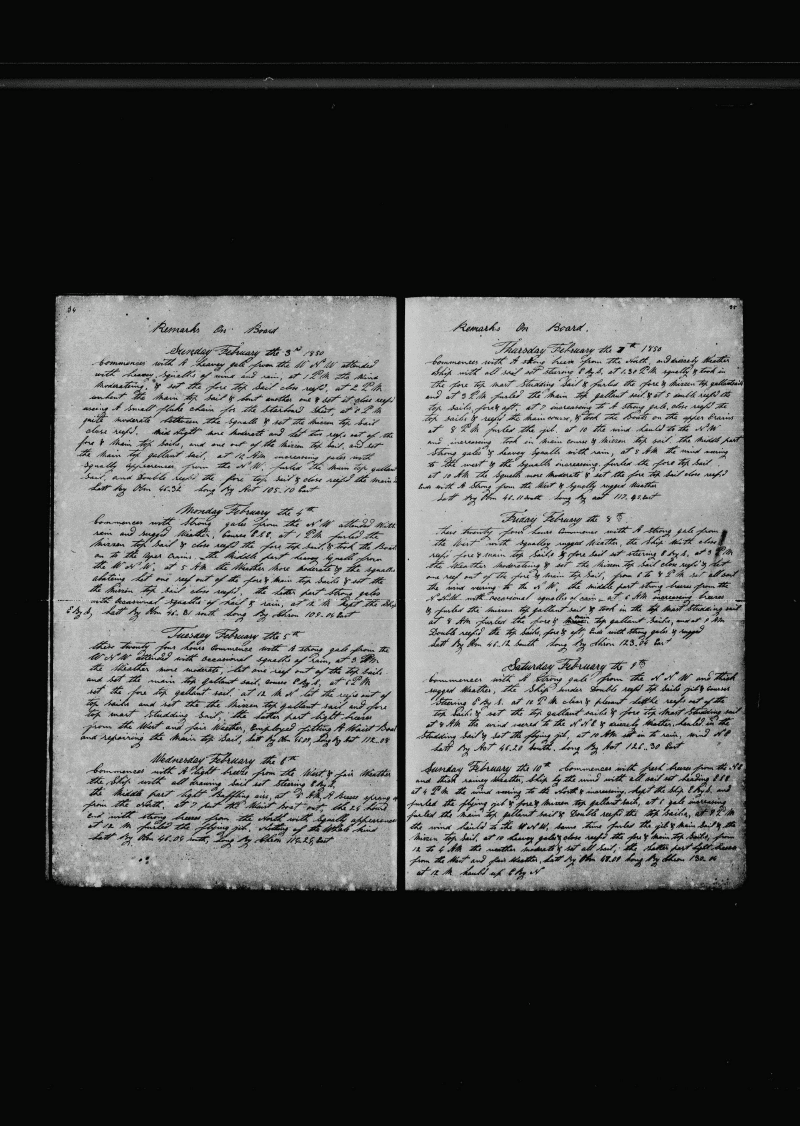 34
Remarks On Board
Sunday February the 3rd 1850
Commences with A heavy gale from the W N W attended
with heavy squalls of wind and rain, at 1 P.M. the wind
moderating, & set the fore top sail close reefd, at 2 P.M
unbent the Main top sail & bent another one & set it close reefd
using A small fluke chain for the Starboard Sheet, at 8 P M
quite moderate between the squalls & set the Mizzen top sail
close reefd. Mid Night more moderate and let two reefs out of the
fore & Main top sails, and one out of the Mizzen top sail, and set
the Main top gallant sail, at 12 A.M increasing gales with
squally appearences from the N W, furled the Main top gallant
sail, and Double reefd the fore top sail & close reefd the main
Latt By Obn 46.32 Long By Act 105.10 East
Monday February the 4th
Commences with Strong gales from the N W attended With
rain and rugged Weather, Course E.S.E, at 1 P M furled the
Mizzen top sail & close reefd the fore top sail, & took the Boats
on to the Uper Crains. the Middle part heavy squalls from
the W N W, at 5 A M the Weather More Moderate & the squalls
abateing let one reef out of the fore & Main top sails & set the
the Mizzen top sail close reefd. the latter part Strong gales
with occasional squalls of hail & rain, at 12 M kept the Ship
E By S, Latt By Obn 46.21 South Long By Chron 109.06 East
Tuesday February the 5th
these twenty four hours Commence with A strong gale from the
W N W attended with occasional squalls of rain, at 3 P.M.
the Weather more moderate, let one reef out of the top sails
and set the main top gallant sail, Course E By S, at 6 P M
set the fore top gallant sail. at 12 M N let the reefs out of
top sails and set the the Mizzen top gallant sail and fore
top mast Studding Sail, the latter part light breeses
from the West and fair Weather, Employed fitting A Waist Boat
and repairing the Main top Sail, Latt By Obn 46.07, Long By Act 112.04
Wednesday February the 6th
Commences with A light breeze from the West & fair Weather
the Ship with all drawing sail set Steering E By S,
the Middle part light Baffling airs, at A.M. A breese sprang
from the North, at 7 put the Waist boat out, the 24 hours
End with strong breeses from the North with squally appearences
at 12 M, furled the flying gib, Nothing of the Whale kind
Latt By Obn 46.09 South, Long By Chron 114.24 East
35
Remarks On Board.
Thursday February the 7th 1850
Commences with A strong breese from the North, and Weather
Ship with all sail set stearing E By S, at 1.30 P.M. squally & took in
the fore top mast Studding Sail & furled the fore & Mizzen top gallantsails
and at 3 P.M. furled the Main top gallant sail & at 5 double reefd the
top sails fore & aft, at 7 increasing to A strong gale, close reefd the
top sails & reefd the main course, & took the Boats on the upper Crains
at 8 P.M. furled the gib. at 10 the wind hauled to the N.W.
and increasing took in main course & Mizzen top sail. the Middle part
Strong gale & heavey squalls with rain, at 5 A M the wind vering
to the West & the squalls increasing, furled the fore top sail.
at 10 A M. the squalls more Moderate & set the fore top sail close reefd
Ends with A Strong from the West & squally rugged Weather
Latt By Obn 46.11 South Long By act 117.42 East
Friday February the 8th
These twenty four hours Commences with A strong gale from
the West with squalley rugged Weather, the Ship With close
reefs fore & main top sails & fore sail set steering E By S, at 3 P.M
the Weather Moderateing & set the Mizzen top sail close reefd & let
one reef out of the fore & Main top sail, from 6 to 8 P.M set all sail
the wind vering to the N W, the middle part strong breeses from the
N N W with occasional squalls of rain, at 6 A M increasing breeses
& furled the Mizzen top gallant sail & took in the top Mast Studding sail
at 8 A M. furled the fore & top gallant Sails, and at 9 A M.
Double reefed the top sails, fore & aft, Ends with strong gales & rugged
Latt By Obn 46.12 South Long By Chron 123.06 East
Saturday February the 9th
Commences with A Strong gale from the N N W and thick
rugged Weather, the Ship under Double reefd top sails gib & courses
Steering E By S. at 10 P.M. clear & pleasent let the reefs out of the
top sails & set the top gallant sails & fore top Mast Studding sail
at 8 A M the wind vered to the N N E & Weather, hauled in the
Studding sail & set the flying gib, at 10 A M. set in to rain, wind N E
Latt By Act 46.20 South. Long By Act 126.30 East
Sunday February the 10th Commences with fresh breeses from the N E
and thick rainey Weather, Ship by the wind with all sail set heading E S E
at 4 P.M. the wind vering to the North & increasing, kept the ship E By S. and
furled the flying gib & fore & Mizzen top gallant sails, at 6 gale increasing
furled the Main top gallant sail & Double reefd the top sails, at 8 P.M
the wind hauled to the W N W, same time furled the gib & main sail & the
Mizzen top sail, at 10 heavey gales & close reefd the fore & Main top sails, from
12 to 4 A M. the weather moderate & set all sail, the latter part light breeses
from the West and fair Weather, Latt By Obn Long By Chron 130.16
at 12 M. hauled up E By N